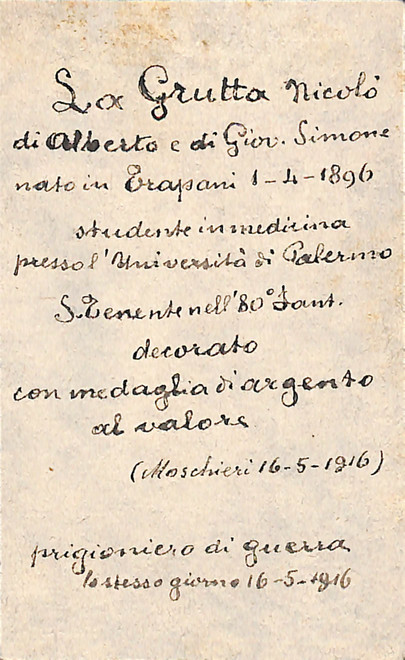 La Grutta Nicolò
di Alberto e di Giov. Simone
nato in Trapani 1-4-1896
studente in medicina
presso l'Università di Palermo
S. Tenente nell'80° Fant.
decorato
con medaglia di argento
al valore
(Moschieri 16-5-1916)
prigioniero di guerra
lo stesso giorno 16-5-1916